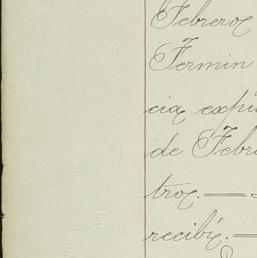 Febrero
Fermin
cia expi
de Febr
tro.—
recibí.—